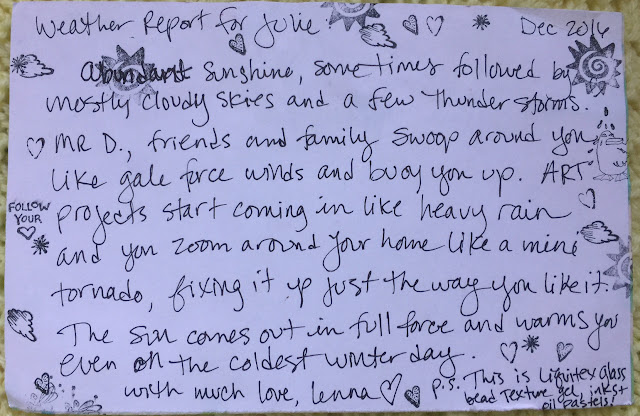 Weather Report for Julie
Dec 2016
Abundant Sunshine, sometimes followed by
mostly cloudy skies and a few thunderstorms.
MR D., friends and family swoop around you
like gale force winds and buoy you up. ART
projects start coming in like heavy rain
and you zoom around your home like a mini
tornado, fixing it up just the way you like it.
The sun comes out in full force and warms you
even on the coldest winter day.
with much love, Lenna
P.S. This is Liquitex Glass
bead Texture gel, inks &
oil pastels!
FOLLOW
YOUR